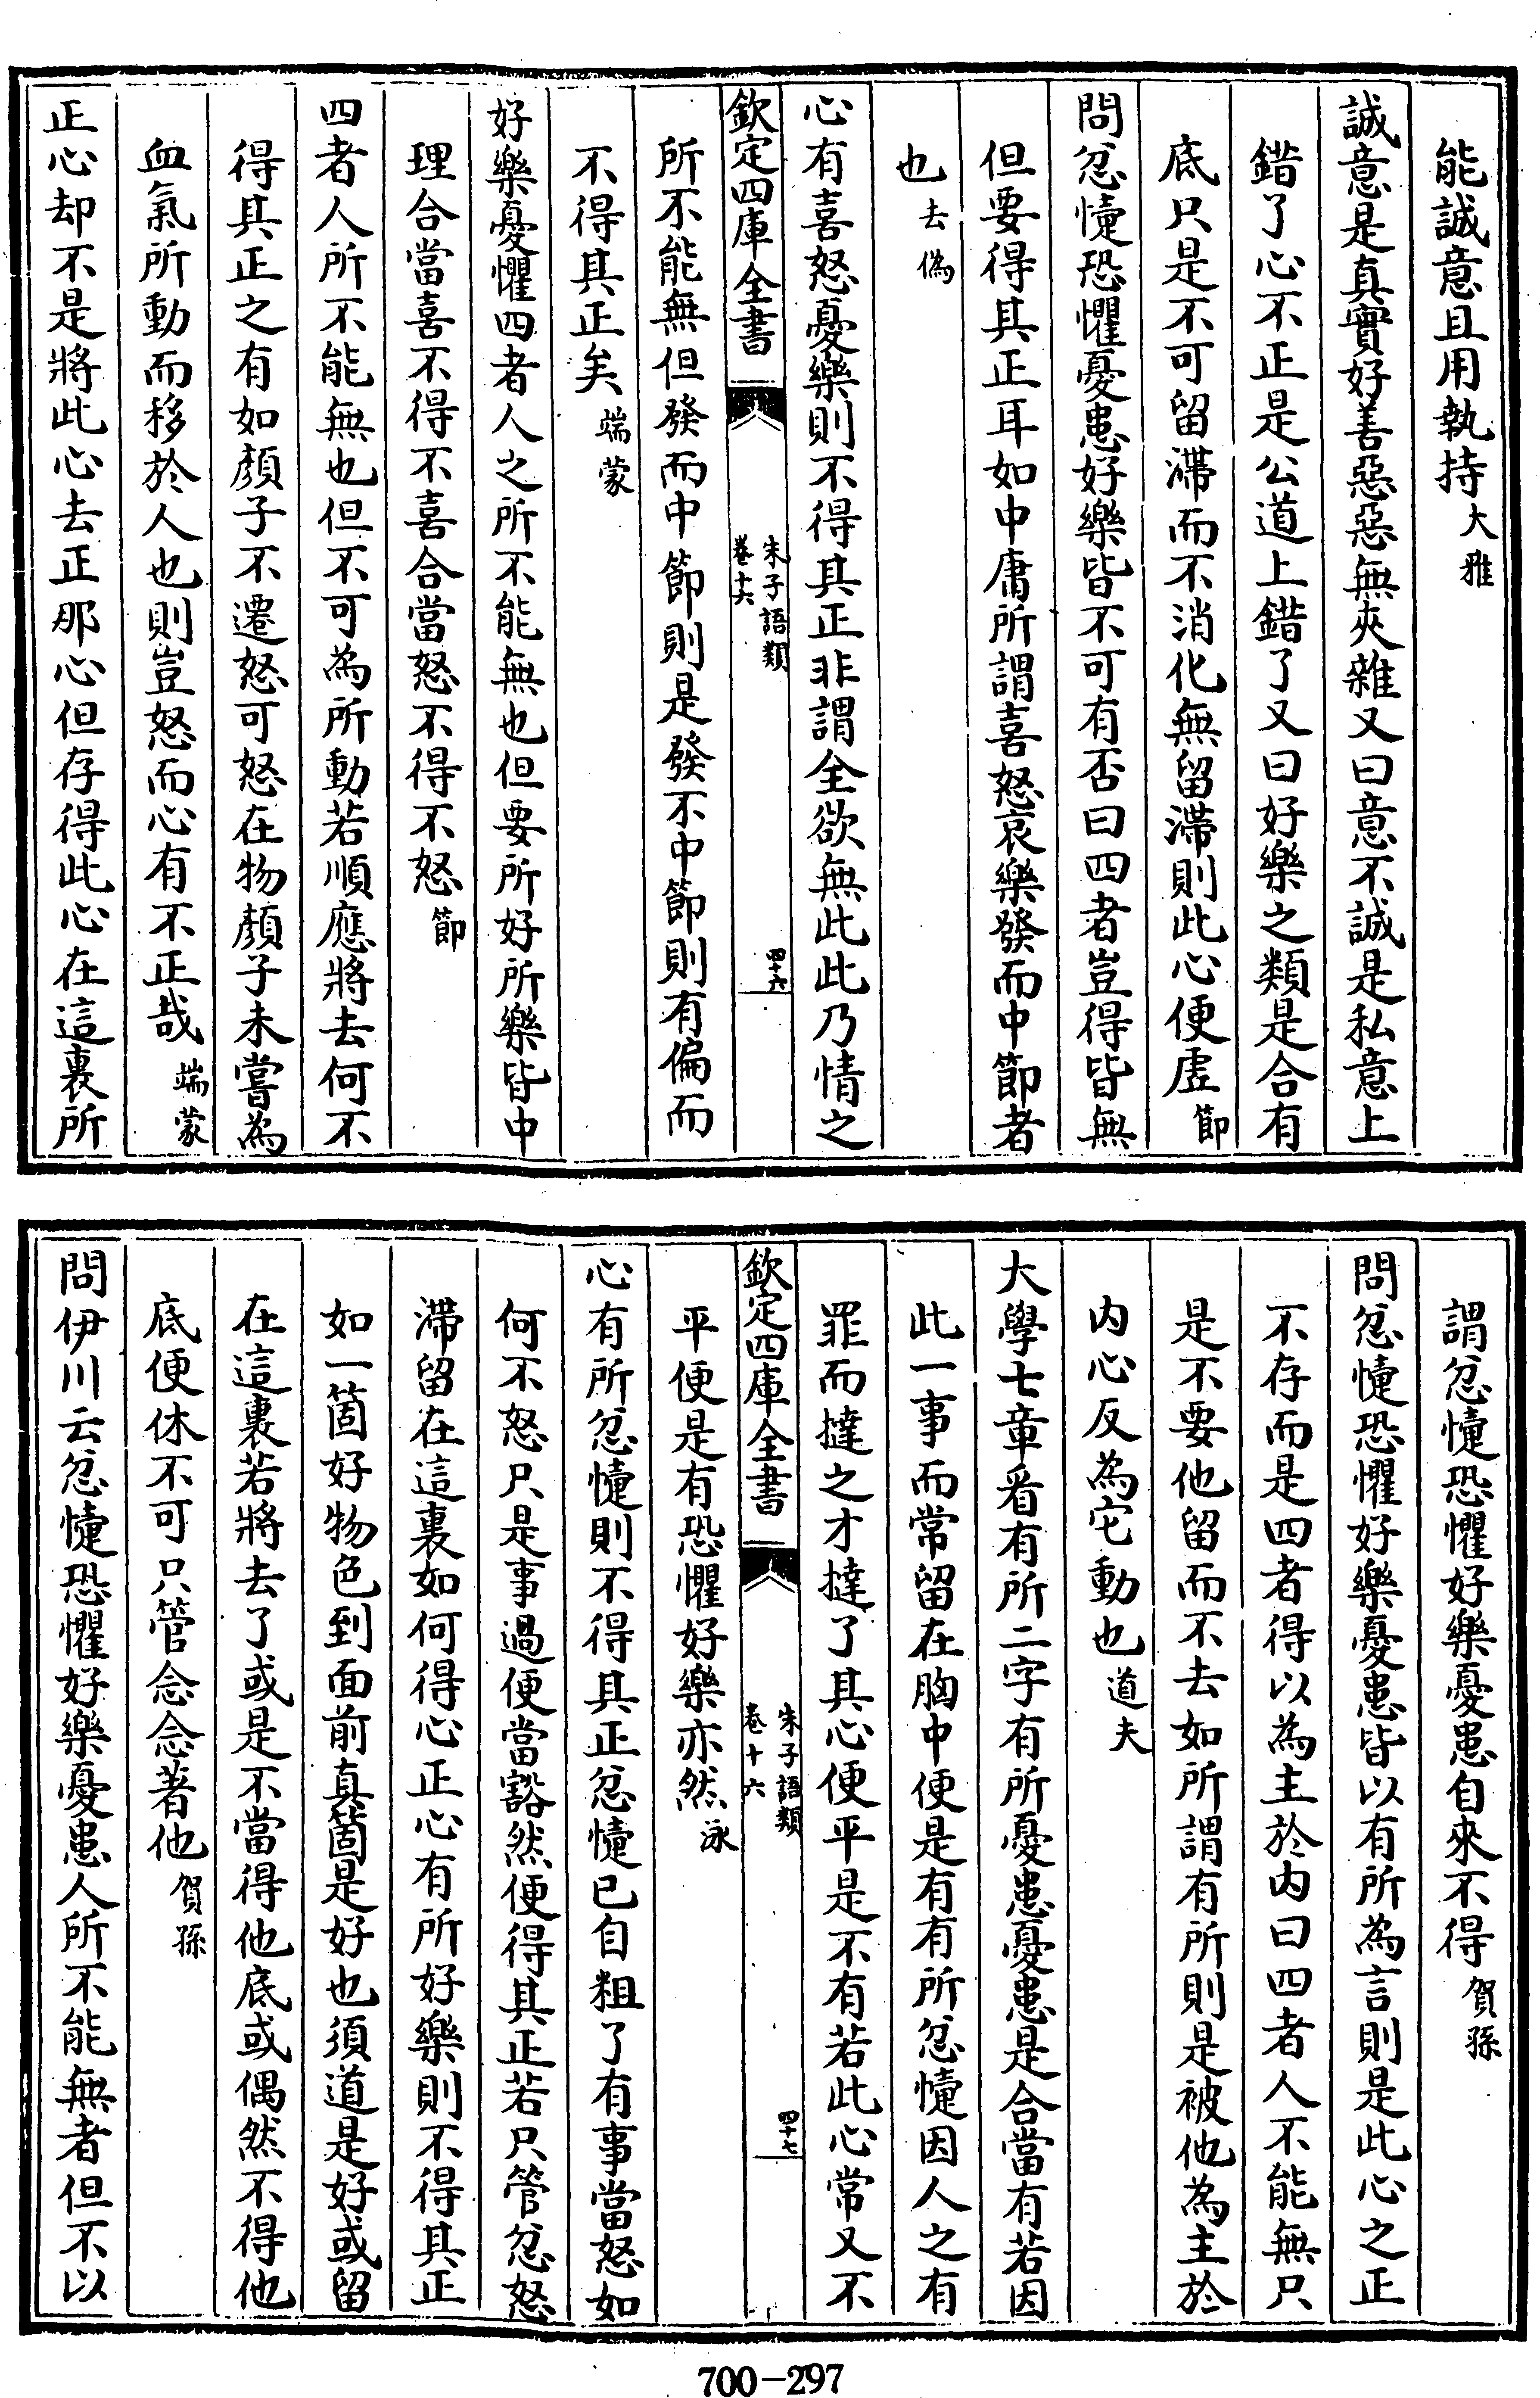 能誠意且用執持大雅
誠意是真實好善惡惡無夾雜又曰意不誠是私意上
錯了心不正是公道上錯了又曰好樂之類是合有
底只是不可留滯而不消化無留滯則此心便虛節
問忿懥恐懼憂患好樂皆不可有否曰四者豈得皆無
但要得其正耳如中庸所謂喜怒哀樂發而中節者
也去偽
心有喜怒憂樂則不得其正非謂全欲無此此乃情之
欽定四庫全書
朱子語類
卷十六
四十六
所不能無但發而中節則是發不中節則有偏而
不得其正矣端蒙
好樂憂懼四者人之所不能無也但要所好所樂皆中
理合當喜不得不喜合當怒不得不怒節
四者人所不能無也但不可為所動若順應將去何不
得其正之有如顏子不遷怒可怒在物顏子未嘗為
血氣所動而移於人也則豈怒而心有不正哉端蒙
正心却不是將此心去正那心但存得此心在這裏所
謂忿懥恐懼好樂憂患自來不得賀孫
問忿懥恐懼好樂憂患皆以有所為言則是此心之正
不存而是四者得以為主於內曰四者人不能無只
是不要他留而不去如所謂有所則是被他為主於
内心反為它動也道夫
大學七章看有所二字有所憂患憂患是合當有若因
此一事而常留在胸中便是有有所忿懥因人之有
罪而撻之才撻了其心便平是不有若此心常又不
欽定四庫全書
朱子語類
卷十六
四十七
平便是有恐懼好樂亦然泳
心有所忿懥則不得其正忿懥已自粗了有事當怒如
何不怒只是事過便當豁然便得其正若只管忿怒
滯留在這裏如何得心正心有所好樂則不得其正
如一箇好物色到面前真箇是好也須道是好或留
在這裏若將去了或是不當得他底或偶然不得他
底便休不可只管念念著他賀孫
問伊川云忿懥恐懼好樂憂患人所不能無者但不以
700-297